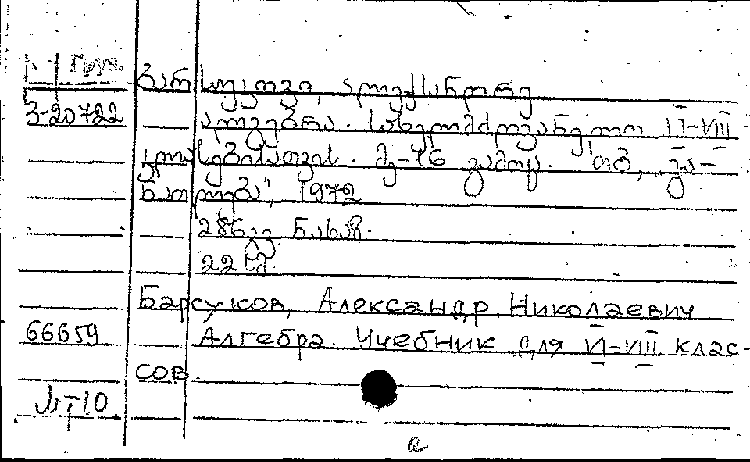 ბარსუკოვი, ალექსანდრე
3-20722
ალგებრა. სახელმძღვანელო VI-VIII
კლასებისათვის. მე-16 გამოც. თბ., "გა-
ნათლება", 1972
286 გვ. ნახაზ.
22 სმ.
Барсуков, Александр Николаевич
66659
Алгебра. Учебник для VI-VIII клас-
сов